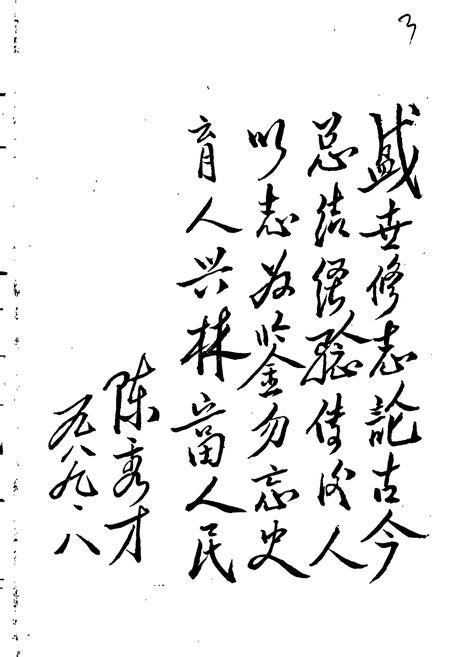 3
盛世修志論古今
总结经驗传後人
以志为鉴勿忘史
育人兴林富人民
陈秀才
一九八九、八